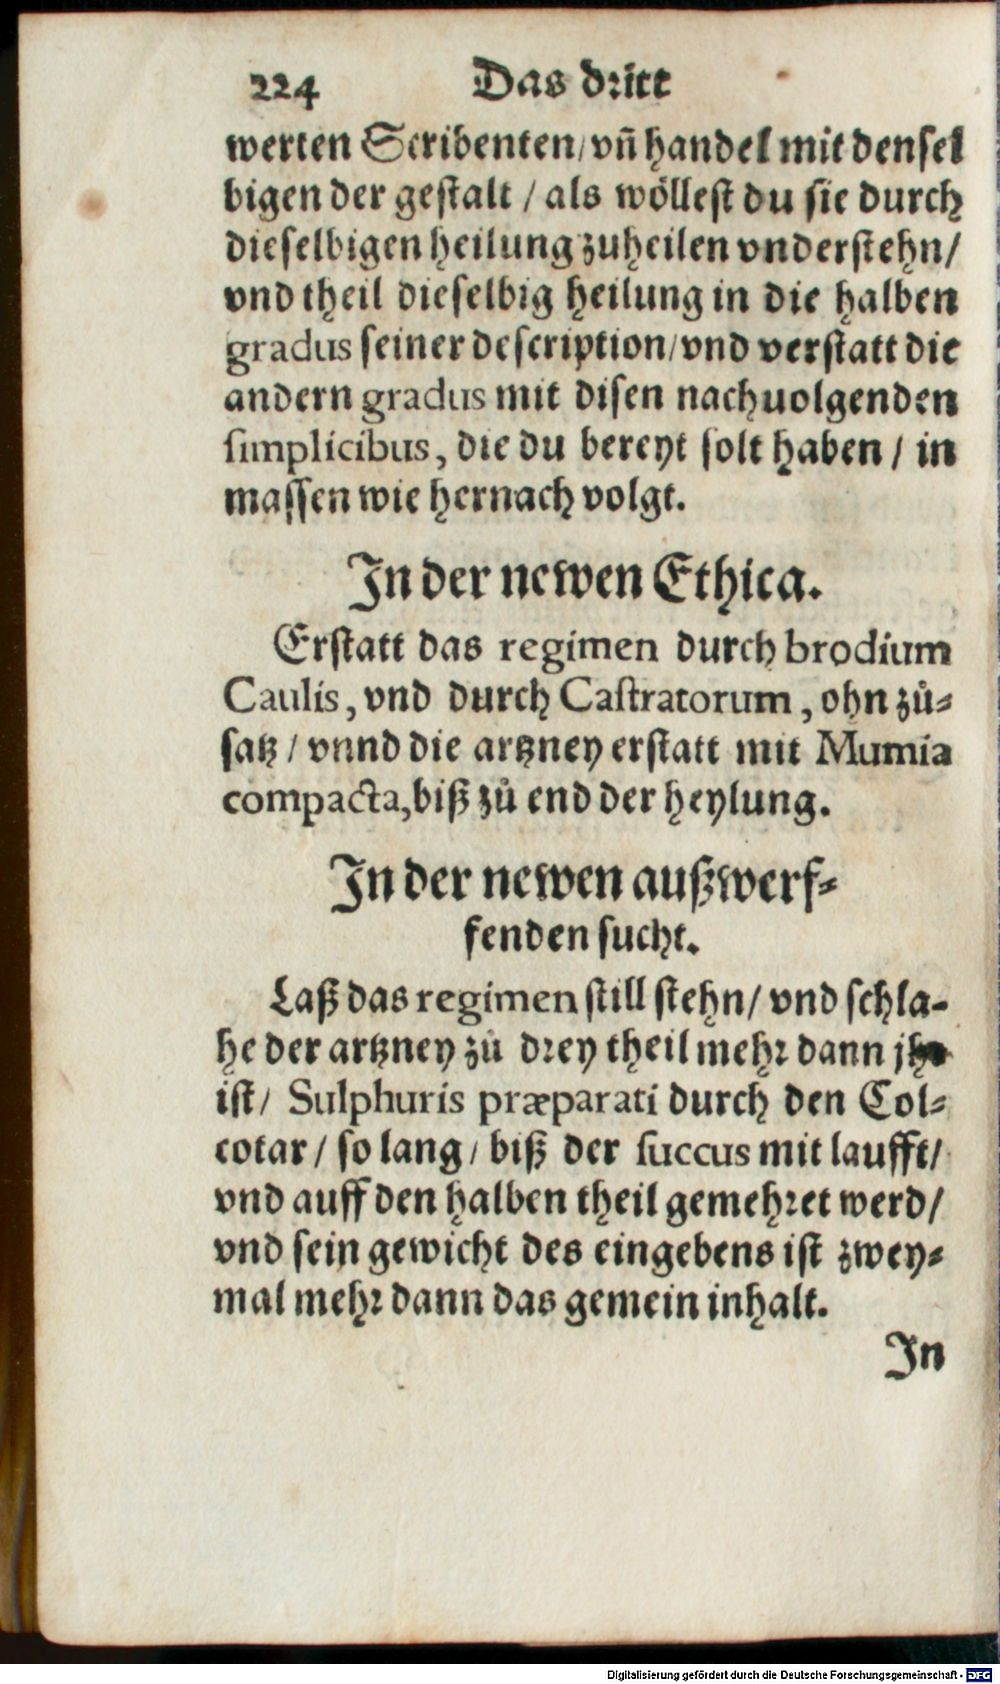 224 Das dritt
werten Scribenten/ vñ handel mit densel
bigen der gestalt / als wöllest du sie durch
dieselbigen heilung zuheilen vnderstehn/
vnd theil dieselbig heilung in die halben
gradus seiner description/ vnd verstatt die
andern gradus mit disen nachuolgenden
simplicibus, die du bereyt solt haben / in
massen wie hernach volgt.
In der newen Ethica.
Erstatt das regimen durch brodium
Caulis, vnd durch Castratorum, ohn zů⸗
satz / vnnd die artzney erstatt mit Mumia
compacta, biß zů end der heylung.
In der newen außwerf⸗
fenden sucht.
Laß das regimen still stehn/ vnd schla-
he der artzney zů drey theil mehr dann jhr
ist/ Sulphuris præparati durch den Col⸗
cotar / so lang/ biß der succus mit laufft/
vnd auff den halben theil gemehret werd/
vnd sein gewicht des eingebens ist zwey⸗
mal mehr dann das gemein inhalt.
In
Digitalisierung gefördert durch die Deutsche Forschungsgemeinschaft - DFG